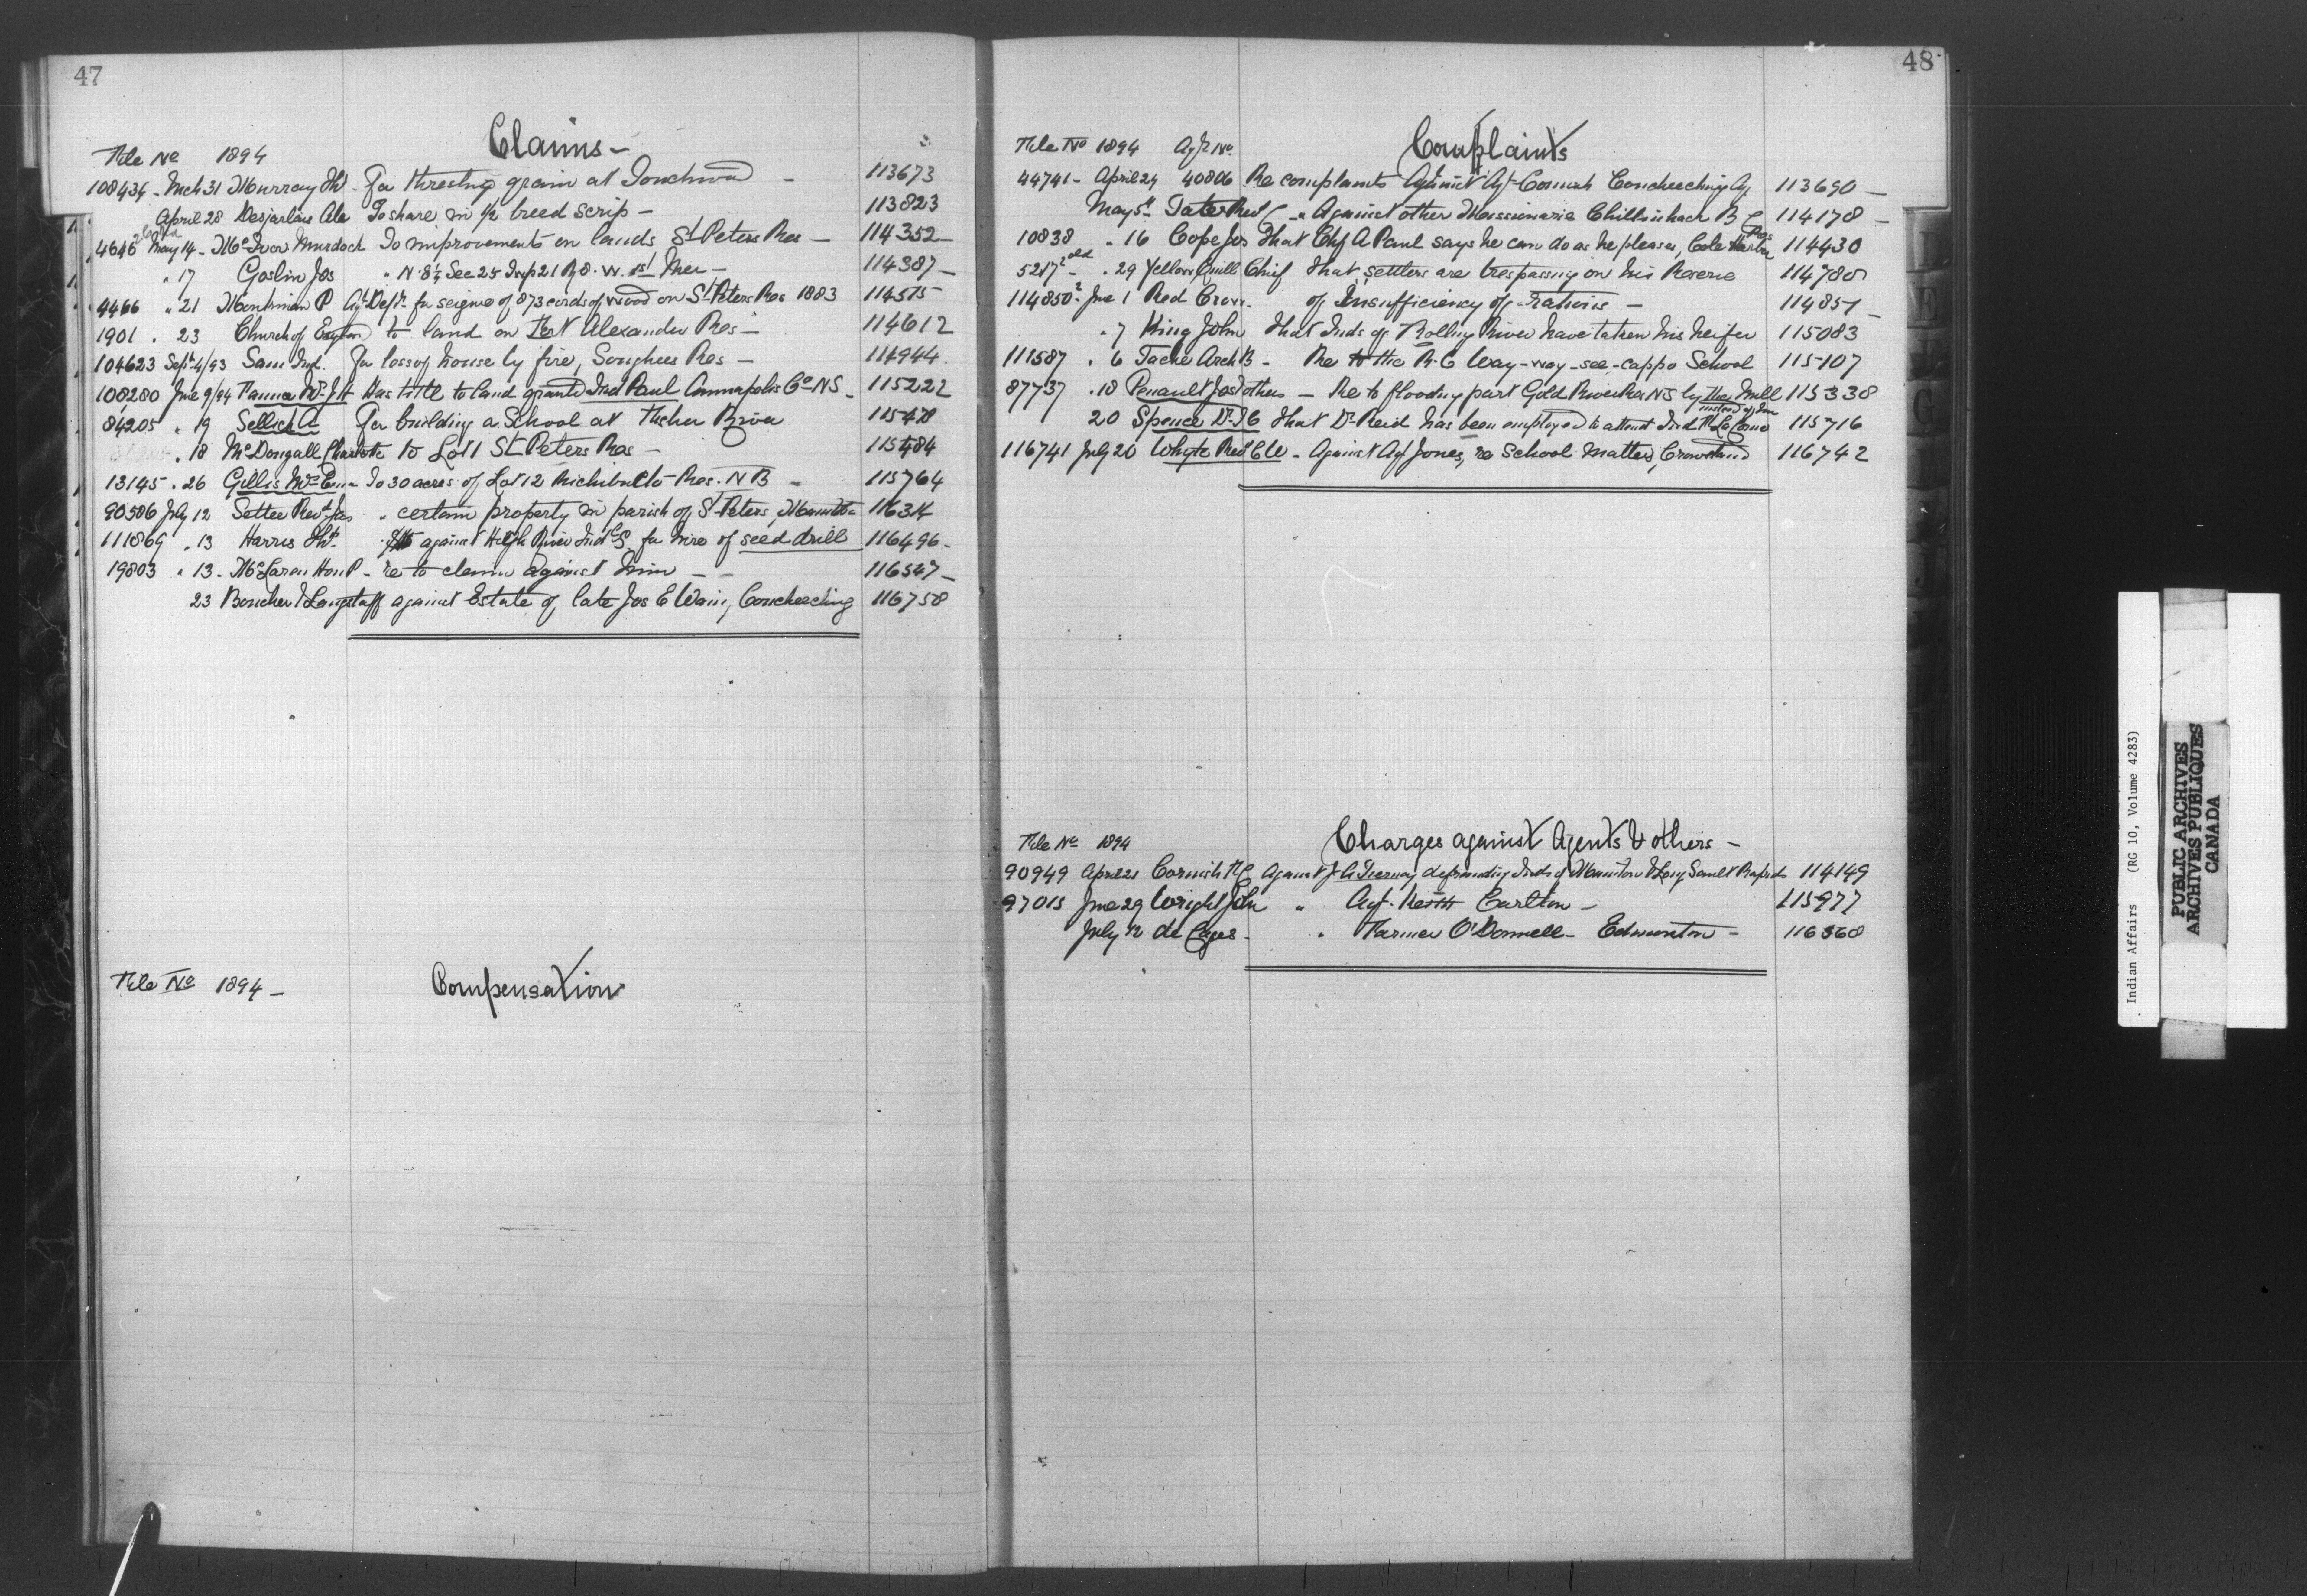 47
Claims -
File No 1894
108434 - Mch 31 Murray Th - For threshing grain at Touchwood - 113673
April 28 Desjarlais Alx To share in 1/2 breed scrip - 113823
4646 2 May 14 - McIvor Murdoch To improvements on lands St Peters Res - 114352 -
" 17 Goslin Jos " N Sec 25 Twp 21 R 8. W. 1st Mer - 114387 -
4466 " 21 Montminian P Agt Dept. for seizure of 873 cords of wood on St Peters Res 1883 114515
1901 . 23 Church of England to land on Alexander Res - 114612
104623 Sept 4/93 Sam Ind. For loss of house by fire, Songhees Res - 114944.
108280 June 9/94 Tanner Wm J H Has title to land granted Ind Paul Annapolis Co NS - 115222
84205 " 19 Sellick A For building a School at Fisher River 115478
. 18 McDougall Charlotte to Lot 1 St Peters Res - 115484
13145 . 26 Gillis To 30 acres of Lot 12 Richibucto Res. N B - 115764
90586 July 12 Settee Revd Jas " certain property in parish of St Peters, Manitoba 116314
111869 . 13 Harris Th. against High River Ind for hire of seed drill 116496 -
19803 " 13 - McLaren Hon P - re to claim against him - - 116547 -
23 Boucher & Langstaff against Estate of late Jos E Wain, Coucheeching 116758
File No 1894 - Compensation
48
File No 1894 Agt No. Complaints
44741 - April 24 40806 Re complaints Against Agt Cornish Coucheeching Ag 113690 -
May 5th Tate Revd C - " Against other Missionaries Chilliwhack B C 114178 -
10838 " 16 Cope Jos That Chf A Paul says he can do as he pleases, Cole Harbor Res 114430
5217 2 old - . 29 Yellow Quill Chief That settlers are trespassing on his Reserve 114780
114850 2 June 1 Red Crow. of Insufficiency of rations - 114857 -
. 7 King John That Inds of Rolling River have taken his heifer 115083
111587 . 6 Tache ArchB - Re to the R. C Way-way-see-cappo School 115107
87737 . 18 Penault Jas & others - Re to flooding part Gold River Res NS by the Mill 115338
20 Spence Dr J C That Dr Reid has been employed to attend Ind 115716
116741 July 26 Whyte Revd C W - Against Agt Jones, re School matters, Crowstand 116742
File No 1894 Charges against Agents & others -
90949 April 21 Cornish F C Against J A defrauding Inds of Manitou & Long Sault Rapids 114149
97015 June 29 Wright John " Agt. Keith Carlton - 115977
July 12 de Cazes - " Farmer O'Donnell - Edmonton - 116368
Indian Affairs (RG 10, Volume 4283)
PUBLIC ARCHIVES
ARCHIVES PUBLIQUES
CANADA